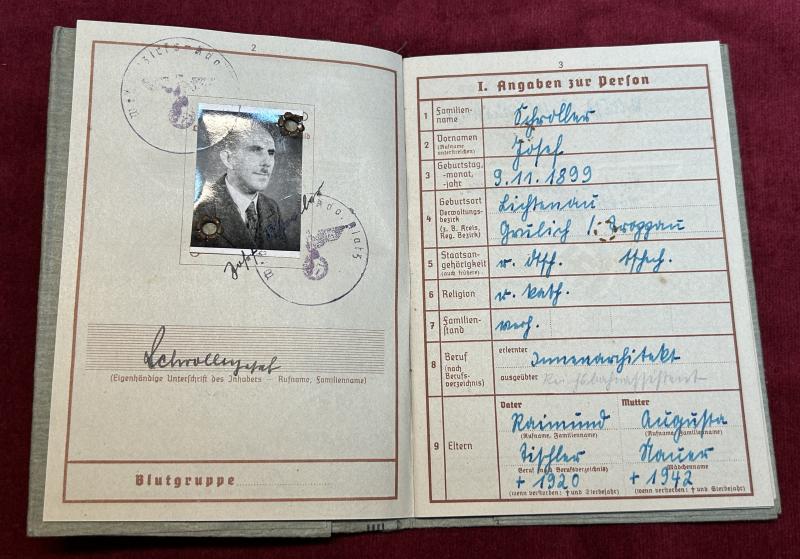 2
Schrollerjosef
(Eigenhändige Unterschrift des Inhabers — Rufname, Familienname)
Blutgruppe
3
I. Angaben zur Person
1 Familien-
name
Schroller
2 Vornamen
(Rufname
unterstreichen)
Josef
3 Geburtstag,
-monat,
-jahr
9.11.1899
4 Geburtsort
Verwaltungs-
bezirk
(z. B. Kreis,
Reg. Bezirk)
Lichtenau
Grulich /: Troppau
5 Staatsan-
gehörigkeit
(auch frühere)
r. dtsch. tschech.
6 Religion
r. kath.
7 Familien-
stand
verh.
8 Beruf
(nach
Berufs-
verzeichnis)
erlernter
Innenarchitekt
ausgeübter
Reichsbahnassistent
9 Eltern
Vater
Raimund
(Rufname, Familienname)
Tischler
Beruf (nach Berufsverzeichnis)
+ 1920
(wenn verstorben: † und Sterbejahr)
Mutter
Augusta
(Rufname, Familienname)
Mädchenname
+ 1942
(wenn verstorben: † und Sterbejahr)